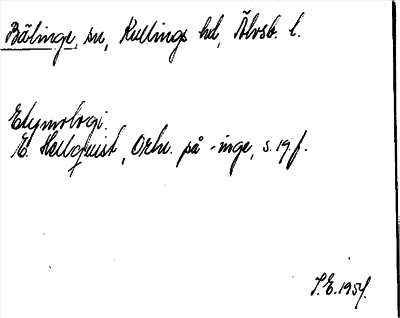 Bälinge, sn, Kullings hd, Älvsb. l.
Etymologi.
E. Hellquist, Ortn. på -inge, s. 19 f.
S.E. 1954.